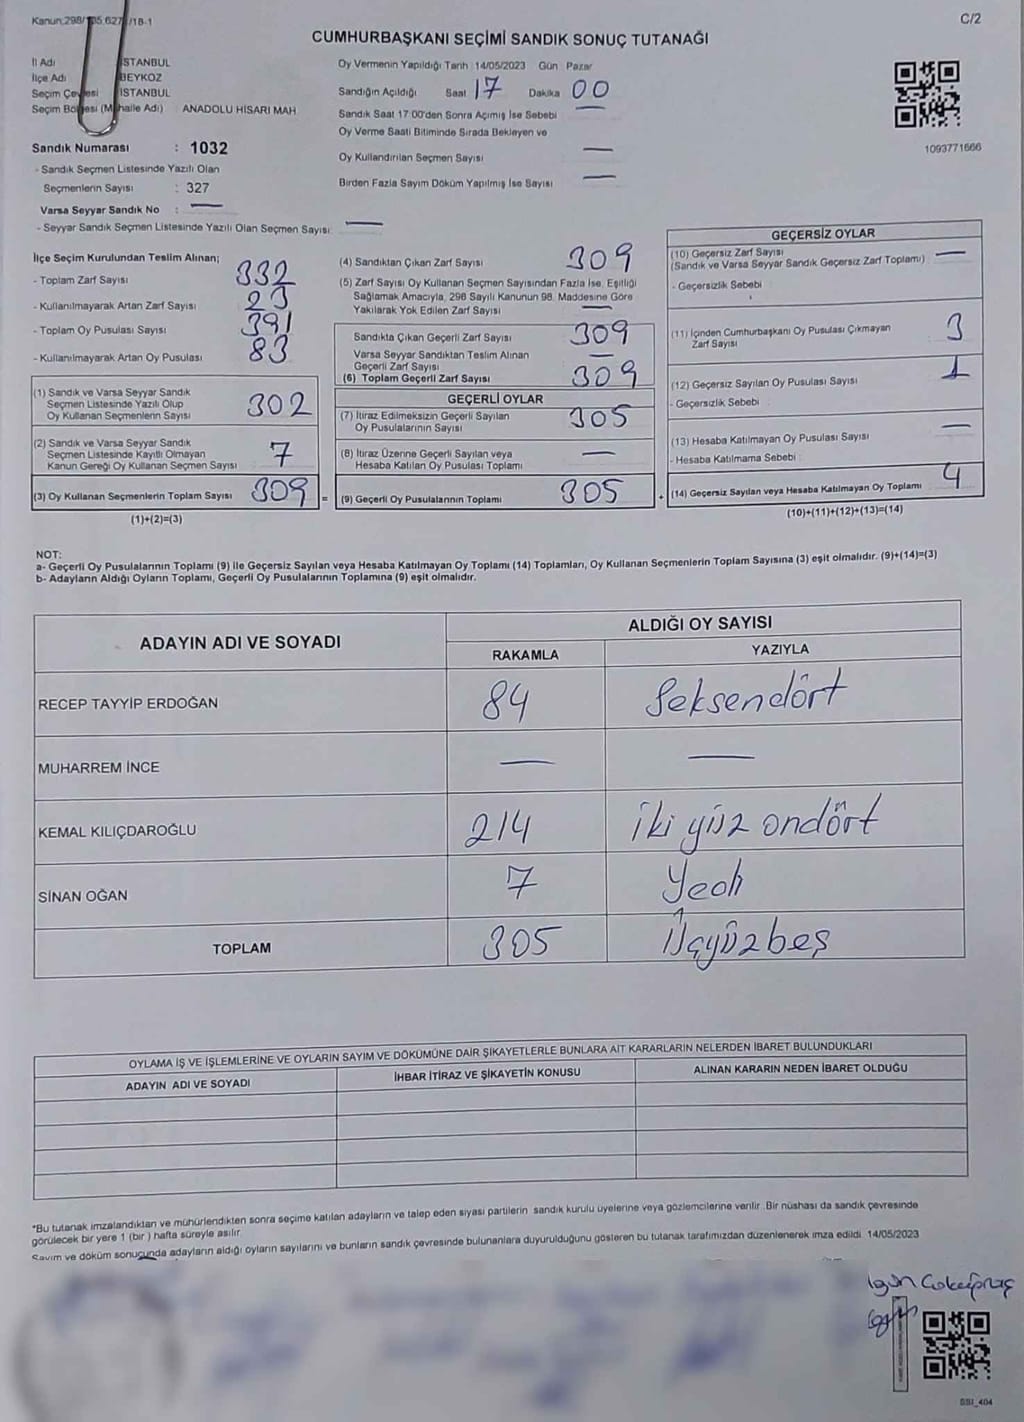 Kanun;298/ /18-1
C/2
CUMHURBAŞKANI SEÇİMİ SANDIK SONUÇ TUTANAĞI
İl Adı İSTANBUL
İlçe Adı BEYKOZ
Seçim Çevresi İSTANBUL
Seçim Bölgesi (Mahalle Adı) ANADOLU HİSARI MAH
Sandık Numarası : 1032
- Sandık Seçmen Listesinde Yazılı Olan
Seçmenlerin Sayısı : 327
Varsa Seyyar Sandık No : —
- Seyyar Sandık Seçmen Listesinde Yazılı Olan Seçmen Sayısı: —
Oy Vermenin Yapıldığı Tarih :14/05/2023 Gün Pazar
Sandığın Açıldığı Saat 17 Dakika 00
Sandık Saat 17:00'den Sonra Açımış İse Sebebi —
Oy Verme Saati Bitiminde Sırada Bekleyen ve
Oy Kullandırılan Seçmen Sayısı —
Birden Fazla Sayım Döküm Yapılmış İse Sayısı —
1093771666
İlçe Seçim Kurulundan Teslim Alınan;
- Toplam Zarf Sayısı 332
- Kullanılmayarak Artan Zarf Sayısı 23
- Toplam Oy Pusulası Sayısı 391
- Kullanılmayarak Artan Oy Pusulası 83
(1) Sandık ve Varsa Seyyar Sandık
Seçmen Listesinde Yazılı Olup
Oy Kullanan Seçmenlerin Sayısı 302
(2) Sandık ve Varsa Seyyar Sandık
Seçmen Listesinde Kayıtlı Olmayan
Kanun Gereği Oy Kullanan Seçmen Sayısı 7
(3) Oy Kullanan Seçmenlerin Toplam Sayısı 309 =
(1)+(2)=(3)
(4) Sandıktan Çıkan Zarf Sayısı 309
(5) Zarf Sayısı Oy Kullanan Seçmen Sayısından Fazla İse, Eşitliği
Sağlamak Amacıyla, 298 Sayılı Kanunun 98. Maddesine Göre
Yakılarak Yok Edilen Zarf Sayısı —
Sandıkta Çıkan Geçerli Zarf Sayısı 309
Varsa Seyyar Sandıktan Teslim Alınan
Geçerli Zarf Sayısı —
(6) Toplam Geçerli Zarf Sayısı 309
GEÇERLİ OYLAR
(7) İtiraz Edilmeksizin Geçerli Sayılan
Oy Pusulalarının Sayısı 305
(8) İtiraz Üzerine Geçerli Sayılan veya
Hesaba Katılan Oy Pusulası Toplamı —
(9) Geçerli Oy Pusulalarının Toplamı 305 +
GEÇERSİZ OYLAR
(10) Geçersiz Zarf Sayısı —
(Sandık ve Varsa Seyyar Sandık Geçersiz Zarf Toplamı)
- Geçersizlik Sebebi
(11) İçinden Cumhurbaşkanı Oy Pusulası Çıkmayan 3
Zarf Sayısı
(12) Geçersiz Sayılan Oy Pusulası Sayısı 1
- Geçersizlik Sebebi
(13) Hesaba Katılmayan Oy Pusulası Sayısı —
- Hesaba Katılmama Sebebi
(14) Geçersiz Sayılan veya Hesaba Katılmayan Oy Toplamı 4
(10)+(11)+(12)+(13)=(14)
NOT:
a- Geçerli Oy Pusulalarının Toplamı (9) ile Geçersiz Sayılan veya Hesaba Katılmayan Oy Toplamı (14) Toplamları, Oy Kullanan Seçmenlerin Toplam Sayısına (3) eşit olmalıdır. (9)+(14)=(3)
b- Adayların Aldığı Oyların Toplamı, Geçerli Oy Pusulalarının Toplamına (9) eşit olmalıdır.
ADAYIN ADI VE SOYADI ALDIĞI OY SAYISI
RAKAMLA YAZIYLA
RECEP TAYYİP ERDOĞAN 84 Seksendört
MUHARREM İNCE — —
KEMAL KILIÇDAROĞLU 214 iki yüz ondört
SİNAN OĞAN 7 Yedi
TOPLAM 305 Üçyüzbeş
OYLAMA İŞ VE İŞLEMLERİNE VE OYLARIN SAYIM VE DÖKÜMÜNE DAİR ŞİKAYETLERLE BUNLARA AİT KARARLARIN NELERDEN İBARET BULUNDUKLARI
ADAYIN ADI VE SOYADI İHBAR İTİRAZ VE ŞİKAYETİN KONUSU ALINAN KARARIN NEDEN İBARET OLDUĞU
*Bu tutanak imzalandıktan ve mühürlendikten sonra seçime katılan adayların ve talep eden siyasi partilerin sandık kurulu üyelerine veya gözlemcilerine verilir .Bir nüshası da sandık çevresinde
görülecek bir yere 1 (bir ) hafta süreyle asılır
Sayım ve döküm sonucunda adayların aldığı oyların sayılarını ve bunların sandık çevresinde bulunanlara duyurulduğunu gösteren bu tutanak tarafımızdan düzenlenerek imza edildi. 14/05/2023
SSI_404